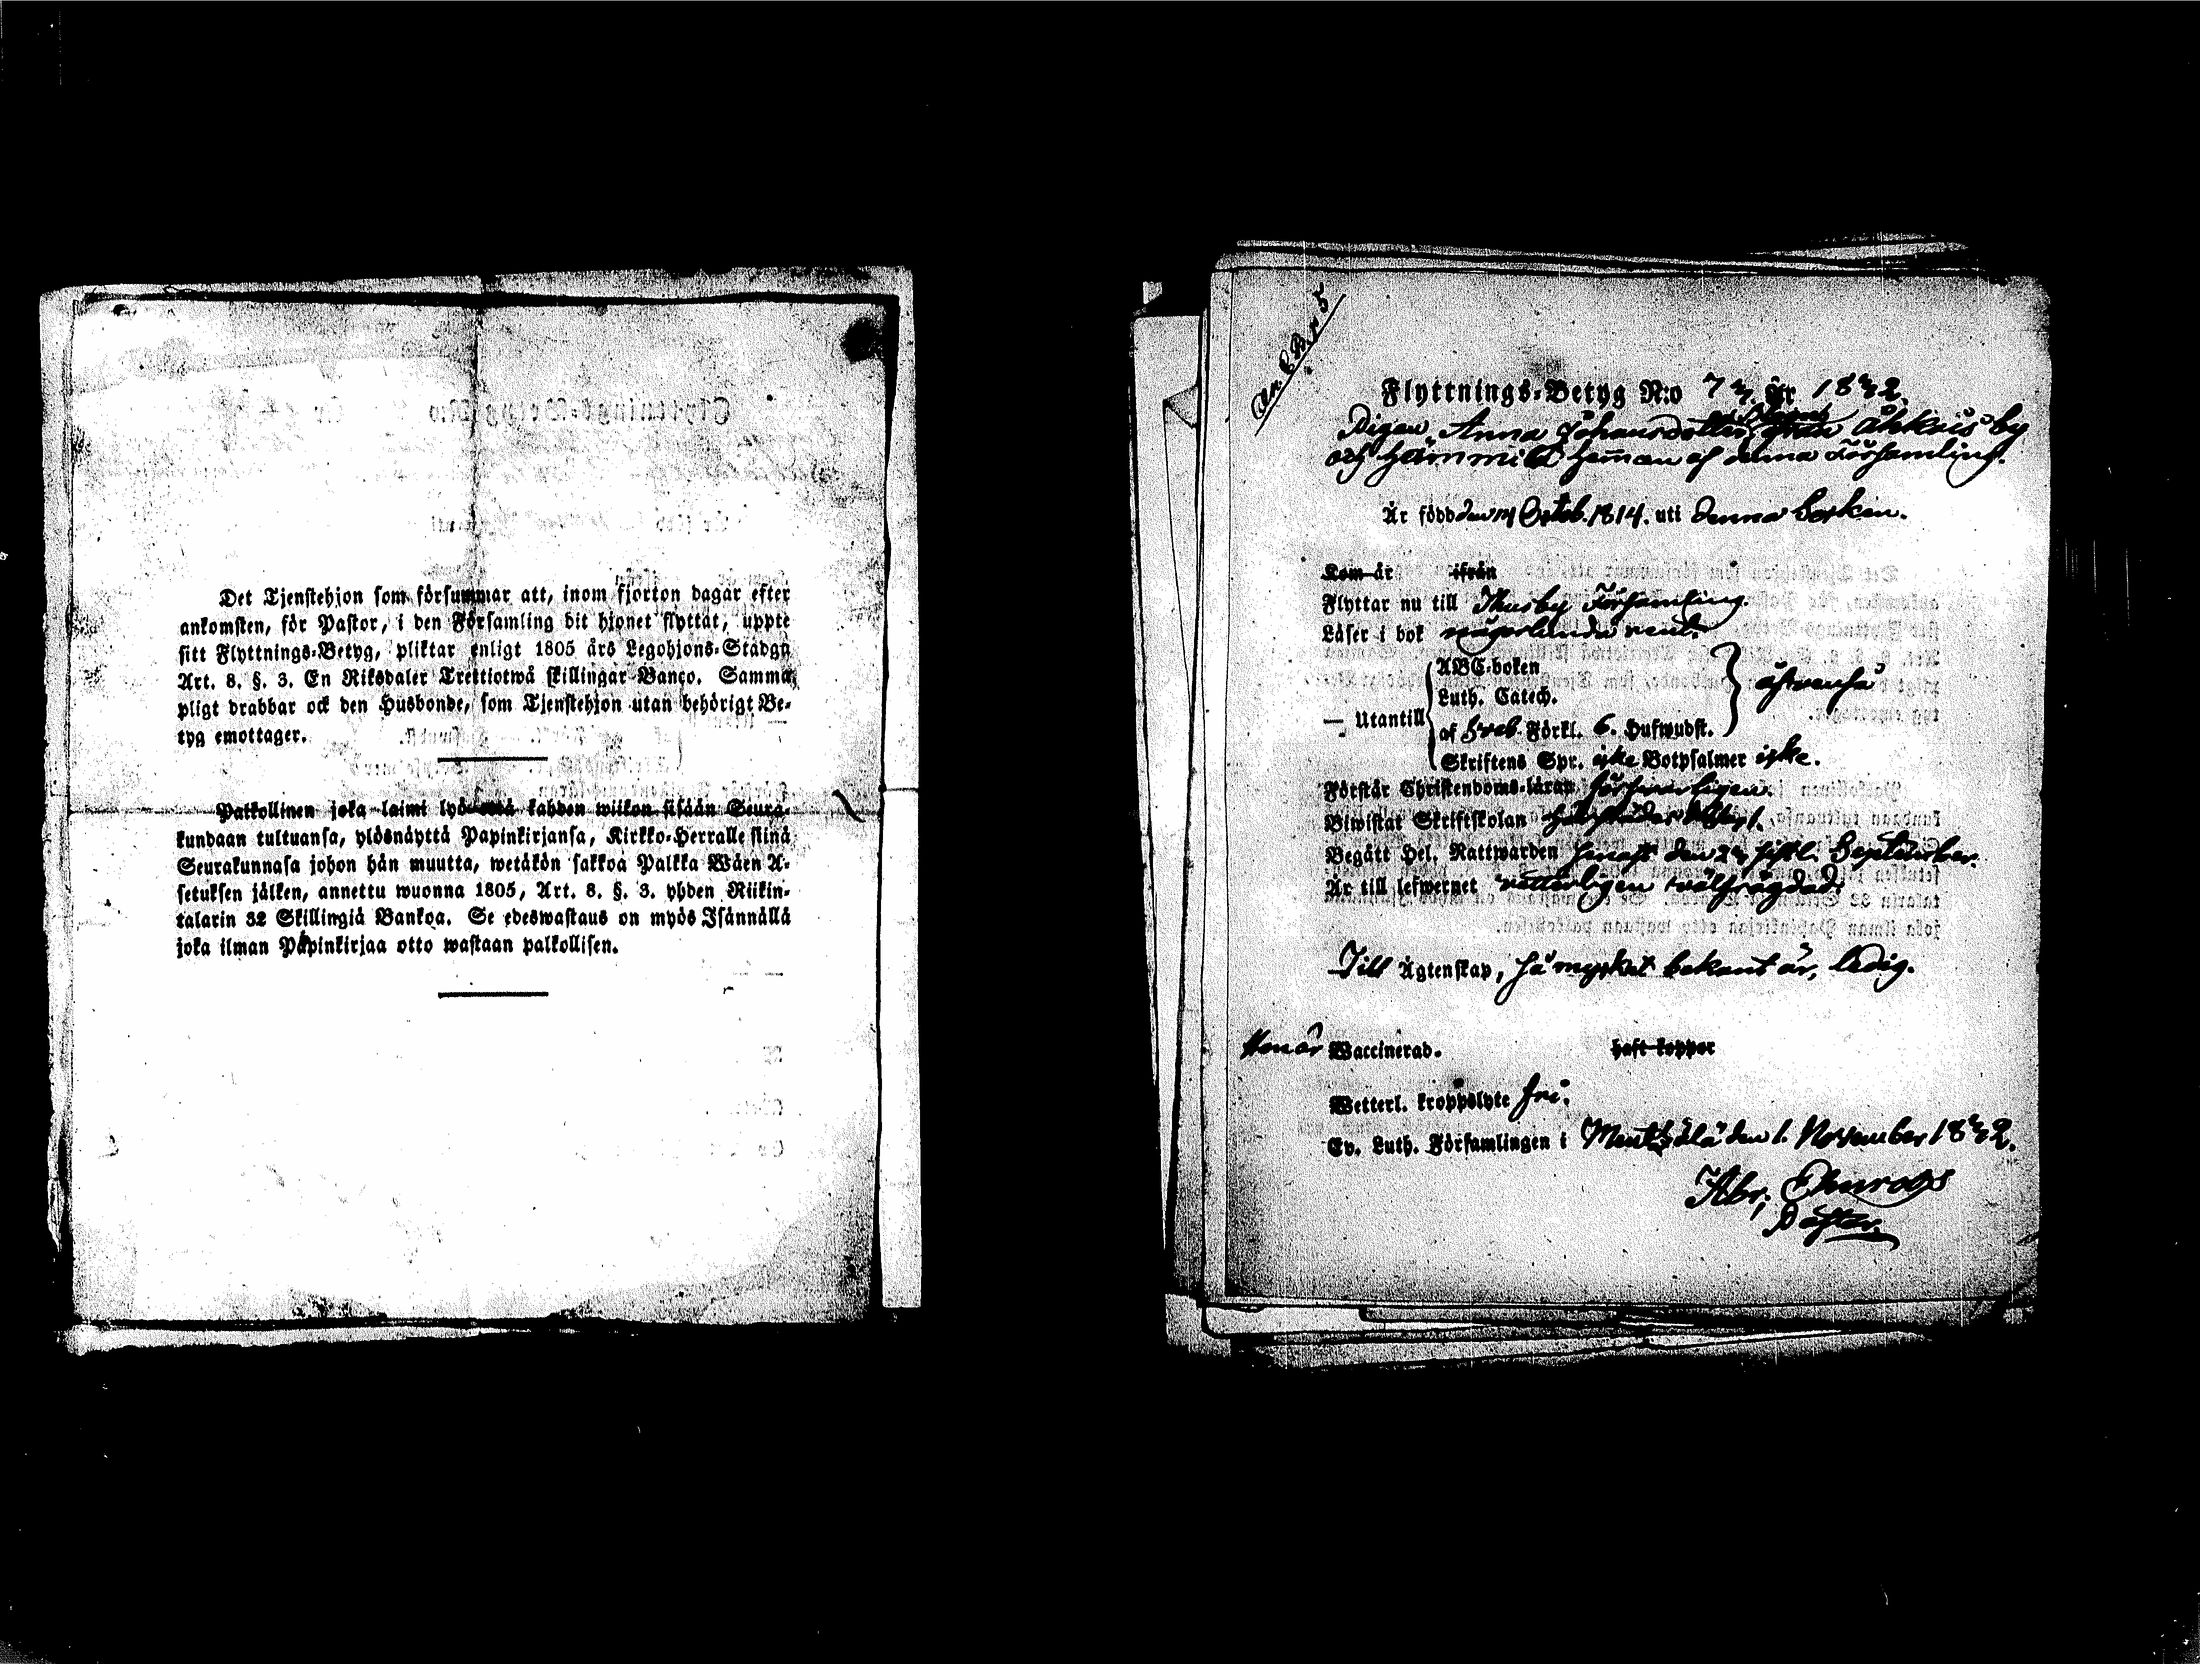 Det Tjenstehjon som försummar att, inom fjorton dagar efter
ankomsten, för Pastor, i den Församling dit hjonet flyttat, uppte
sitt Flyttnings-Betyg, pliktar enligt 1805 års Legohjons-Stadga
Art. 8. §. 3. En Riksdaler Trettiotwå skillingar Banco. Samma
pligt drabbar ock den Husbonde, som Tjenstehjon utan behörigt Be-
tyg emottager.
Palkollinen joka laimi lyö että kahden wiikon sisään Seura-
kundaan tultuansa, ylösnäyttä Papinkirjansa, Kirkko-Herralle siinä
Seurakunnasa johon hän muutta, wetäkön sakkoa Palkka Wäen A-
setuksen jälken, annettu wuonna 1805, Art. 8. §. 3. yhden Riikin-
talarin 32 Skillingiä Bankoa. Se edeswastaus on myös Isännällä
joka ilman Papinkirjaa otto wastaan palkollisen.
Flyttnings-Betyg N:o 74. År 1842.
Pigan Anna Johansdotter från by
och hemman af denna Församling.
Är född den Octob. 1814. uti denna Socken.
Kom år ifrån
Flyttar nu till Thusby Församling.
Läser i bok någorlunda rent.
ABC-boken
Luth. Catech.
— Utantill
af Sveb. Förkl. 6. Hufwudst.
Skriftens Spr. icke Botpsalmer icke.
Förstår Christendoms-läran försvarligen.
Biwistat Skriftskolan
Begått Hel. Nattwarden senast den sistl. September.
Är till lefwernet wetterligen wälfrägdad.
Till Ägtenskap, så mycket bekant är, ledig.
Hon är Waccinerad. haft koppor
Wetterl. kroppslyte fri.
Ev. Luth. Församlingen i Mentzälä den 1. November 1842.
Abr.
Pastor.